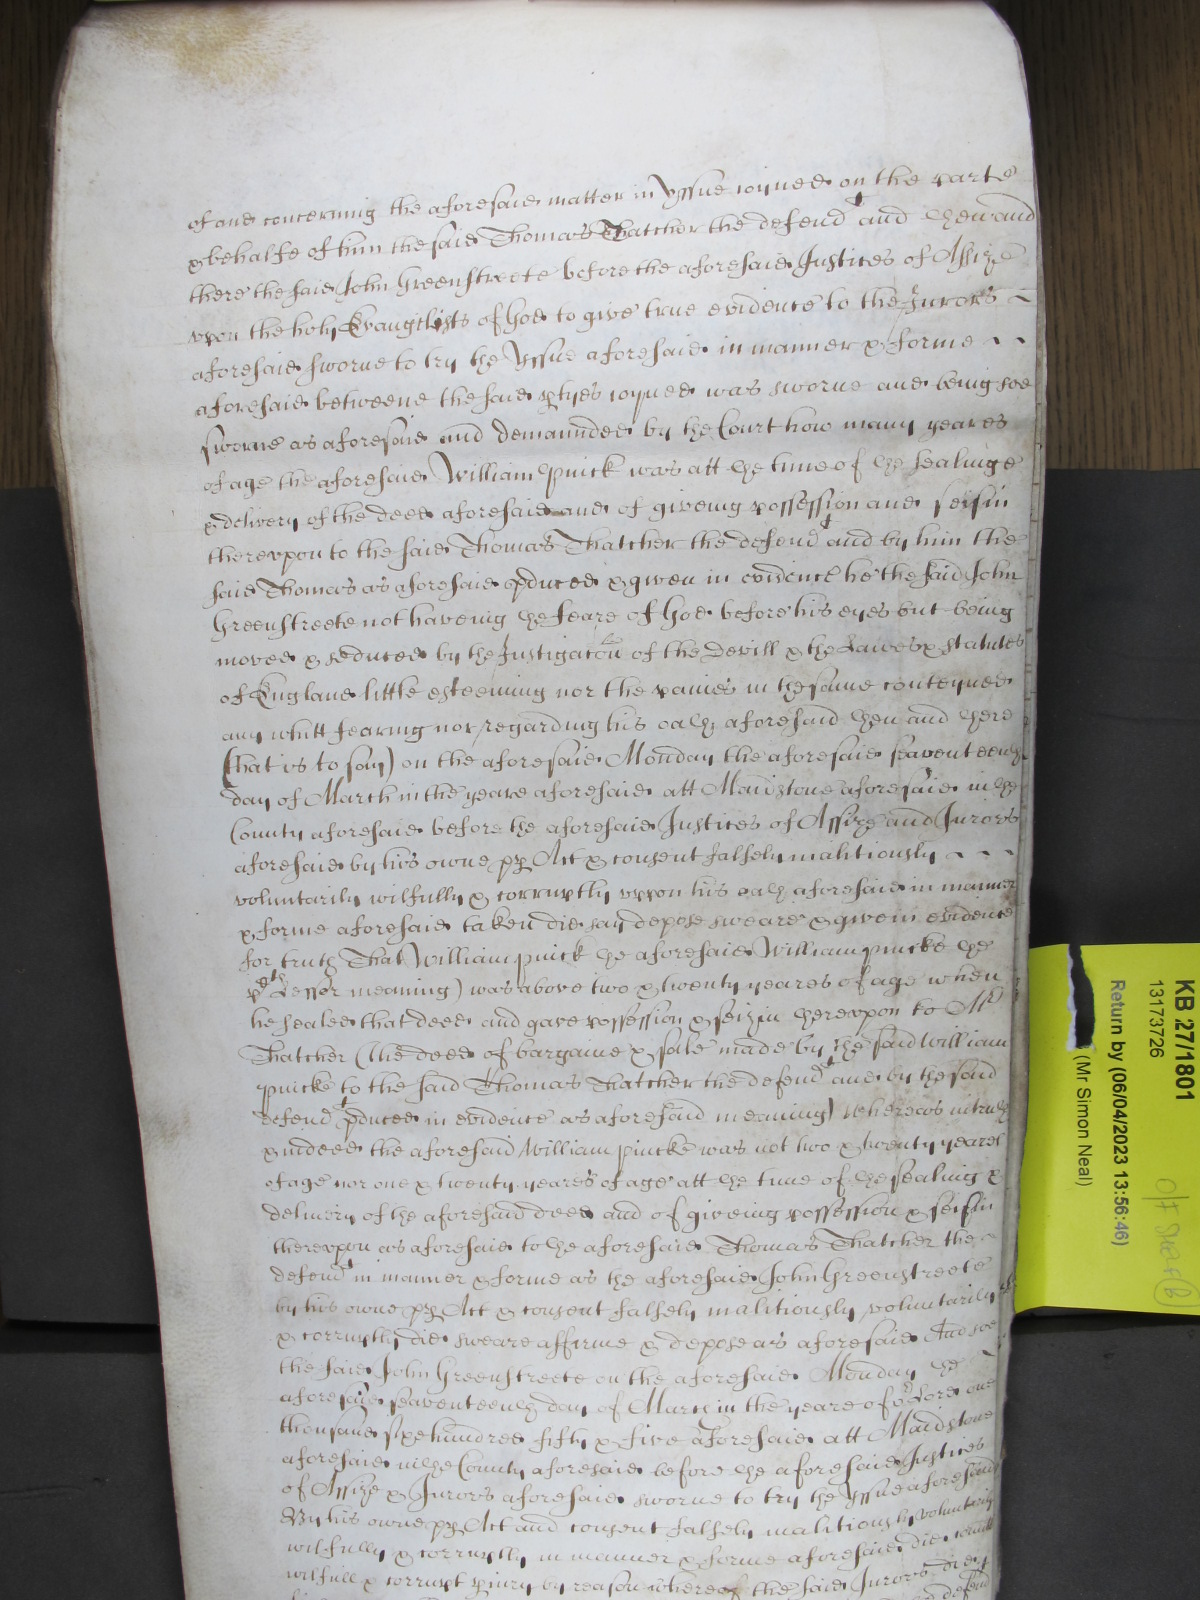 of and concerning the aforesaid matter in yssue ioyned on the parte
& behalfe of him the said Thomas Thatcher the defend[t] and then and
there the said John Greenstreete before the aforesaid Justices of Assize
vpon the holy Evangelists of God to give true evidence to the Jurors
aforesaid sworne to try the yssue aforesaid in manner & forme
aforesaid betweene the said ptyes ioyned was sworne and being soe
sworne as aforesaid and demaunded by the Court how many yeares
of age the aforesaid William Pinick was att the time of the sealinge
& delivery of the deed aforesaid and of giveing possession and seisin
therevpon to the said Thomas Thatcher the defend[t] and by him the
said Thomas as aforesaid pduced & given in evidence he the said John
Greenstreete not haveing the feare of God before his eyes but being
moved & seduced by the Instigacon of the Devill & the Lawes & statutes
of England little esteeming nor the paines in the same conteyned
any whitt fearing nor regarding his oath aforesaid then and there
(that is to say) on the aforesaid Monday the aforesaid seaventeenth
day of March in the yeare aforesaid att Maidstone aforesaid in the
County aforesaid before the aforesaid Justices of Assize and Jurors
aforesaid by his owne pp Act & consent falsely malitiously
voluntarily wilfully & corruptly vppon his oath aforesaid in manner
& forme aforesaid taken did say depose sweare & give in evidence
for truth That William pinick the aforesaid William pinicke the
Lessor meaning) was above two & twenty yeares of age when
he sealed that deed and gave possession & seizin therevpon to Mr
Thatcher (the deed of bargaine & sale made by the said William
pinicke to the said Thomas Thatcher the defend[t] and by the said
defend[t] pduced in evidence as aforesaid meaning) Whereas in truth
& indeed the aforesaid William pincke was not two & twenty yeares
of age nor one & twenty yeares of age att the time of the sealing &
delivery of the aforesaid deed and of giveing possession & seisin
therevpon as aforesaid to the aforesaid Thomas Thatcher the
defend[t] in manner & forme as the aforesaid John Greenstreete
by his owne pp Act & consent falsely malitiously voluntarily
& corruptly did sweare affirme & depose as aforesaid And soe
the said John Greenstreete on the aforesaid Monday the
aforesaid seaventeenth day of March in the yeare of or Lord one
thousand sixe hundred fifty & five aforesaid att Maidstone
aforesaid in the County aforesaid before the aforesaid Justices
of Assize & Jurors aforesaid sworne to try the yssue aforesaid
By his owne pp Act and consent falsely malitiously voluntarily
wilfully & corruptly in manner & forme aforesaid did comitt
wilfull & corrupt piury by reason whereof the said Jurors did
KB 27/1801
13173726
Return by (06/04/2023 13:56:46)
(Mr Simon Neal)